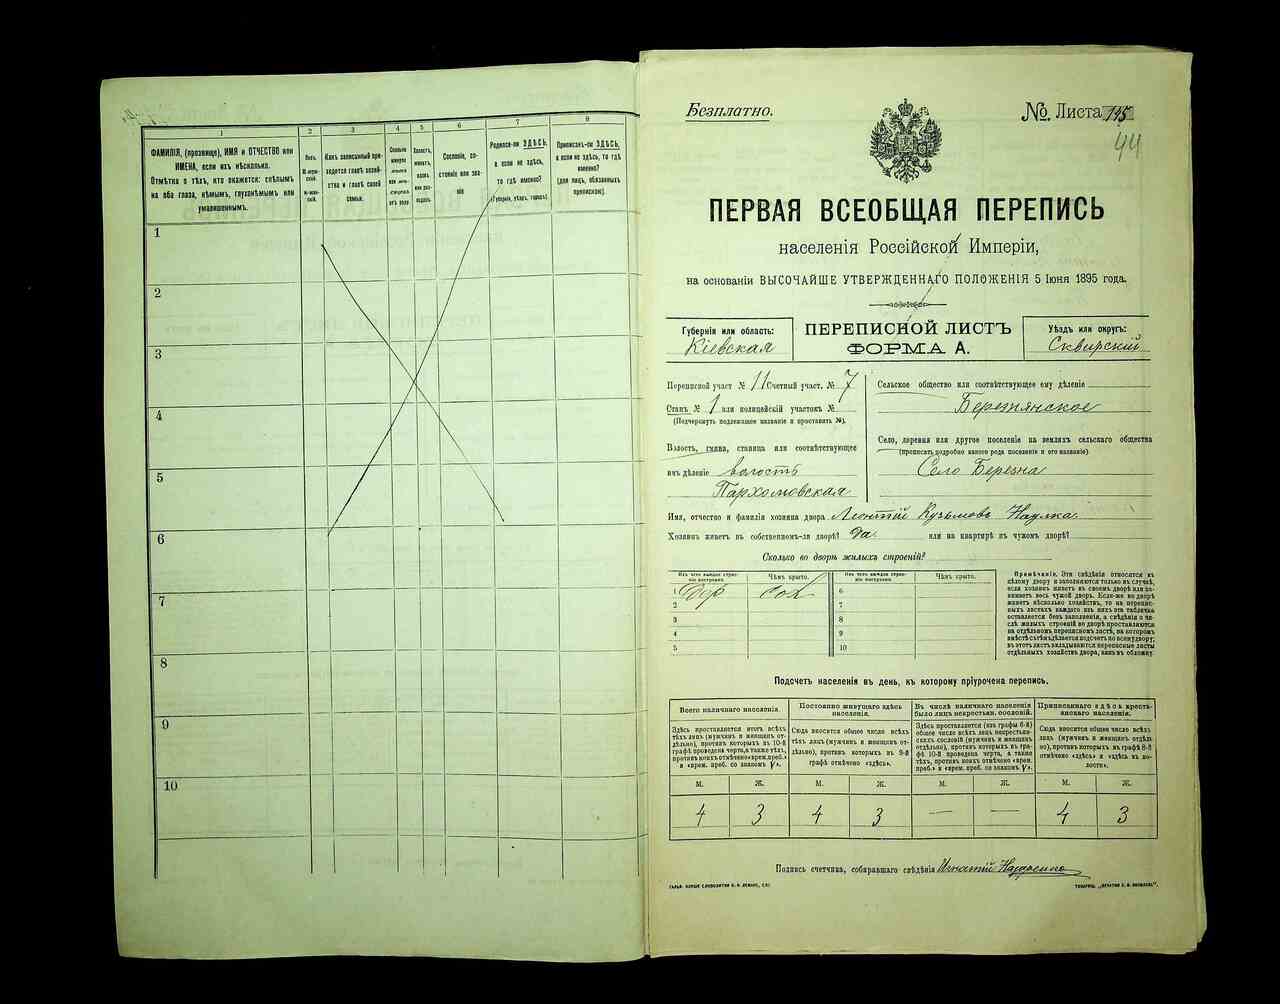 1
2
3
4
5
6
7
8
ФАМИЛІЯ, (прозвище), ИМЯ и ОТЧЕСТВО или
ИМЕНА, если ихъ нѣсколько.
Отмѣтка о тѣхъ, кто окажется: слѣпымъ
на оба глаза, нѣмымъ, глухонѣмымъ или
умалишеннымъ.
Полъ.
Какъ записанный при-
ходится главѣ хозяй-
ства и главѣ своей
семьи.
Сколько
минуло
лѣтъ
отъ роду
Сословіе, со-
стояніе или зва-
ніе
Родился-ли ЗДѢСЬ,
а если не здѣсь,
то гдѣ именно?
(Губернія, уѣздъ, городъ).
Приписанъ-ли ЗДѢСЬ,
а если не здѣсь, то гдѣ
именно?
(для лицъ, обязанныхъ
припискою).
1
2
3
4
5
6
7
8
9
10
Безплатно.
№ Листа 145
44
ПЕРВАЯ ВСЕОБЩАЯ ПЕРЕПИСЬ
населенія Россійской Имперіи,
на основаніи ВЫСОЧАЙШЕ УТВЕРЖДЕННАГО ПОЛОЖЕНІЯ 5 Іюня 1895 года.
Губернія или область:
Кіевская
ПЕРЕПИСНОЙ ЛИСТЪ
ФОРМА А.
Уѣздъ или округъ:
Сквирскій
Переписной участ. № 11 Счетный участ. № 7
Станъ № 1 или полицейскій участокъ №
(Подчеркнуть подлежащее названіе и проставить №).
Волость, гмина, станица или соотвѣтствующее
имъ дѣленіе волость
Пархомовская
Сельское общество или соотвѣтствующее ему дѣленіе
Березнянское
Село, деревня или другое поселеніе на земляхъ сельскаго общества
(прописать подробно какого рода поселеніе и его названіе)
Село Березна
Имя, отчество и фамилія хозяина двора Леонтій Кузьмовъ Наулка
Хозяинъ живетъ въ собственномъ-ли дворѣ? Да. или на квартирѣ въ чужомъ дворѣ?
Сколько во дворѣ жилыхъ строеній?
Изъ чего каждое строе-
ніе построено.
Чѣмъ крыто.
Изъ чего каждое строе-
ніе построено.
Чѣмъ крыто.
1 дер сол
2
3
4
5
6
7
8
9
10
Примѣчаніе. Эти свѣдѣнія относятся къ
цѣлому двору и заполняются только въ случаѣ,
если хозяинъ живетъ въ своемъ дворѣ или за-
нимаетъ весь чужой дворъ. Если-же во дворѣ
живетъ нѣсколько хозяйствъ, то на перепис-
ныхъ листахъ каждаго изъ нихъ эта табличка
оставляется безъ заполненія, а свѣдѣнія о чи-
слѣ жилыхъ строеній во дворѣ проставляются
на отдѣльномъ переписномъ листѣ, на которомъ
вмѣстѣ съ тѣмъ дѣлается подсчетъ по всему двору;
въ этотъ листъ вкладываются переписные листы
отдѣльныхъ хозяйствъ двора, какъ въ обложку.
Подсчетъ населенія въ день, къ которому пріурочена перепись.
Всего наличнаго населенія.
Постоянно живущаго здѣсь
населенія.
Въ числѣ наличнаго населенія
было лицъ некрестьян. сословій.
Приписаннаго здѣсь кресть-
янскаго населенія.
Здѣсь проставляется итогъ всѣхъ
тѣхъ лицъ (мужчинъ и женщинъ от-
дѣльно), противъ которыхъ въ 10-й
графѣ проведена черта, а также тѣхъ,
противъ коихъ отмѣчено «врем. преб.»
и «врем. преб. со знакомъ V».
Сюда вносится общее число всѣхъ
тѣхъ лицъ (мужчинъ и женщинъ от-
дѣльно), противъ которыхъ въ 9-й
графѣ отмѣчено «здѣсь».
Здѣсь проставляется (изъ графы 6-й)
общее число всѣхъ лицъ некрестьян-
скихъ сословій (мужчинъ и женщинъ
отдѣльно), противъ которыхъ въ гра-
фѣ 10-й проведена черта, а также
тѣхъ, противъ коихъ отмѣчено «врем.
преб.» и «врем. преб. со знакомъ V».
Сюда вносится общее число всѣхъ
лицъ (мужчинъ и женщинъ отдѣль-
но), противъ которыхъ въ графѣ 8-й
отмѣчено «здѣсь» и «здѣсь въ во-
лости».
М. Ж. М. Ж. М. Ж. М. Ж.
4 3 4 3 — — 4 3
Подпись счетчика, собиравшаго свѣдѣнія Игнатій